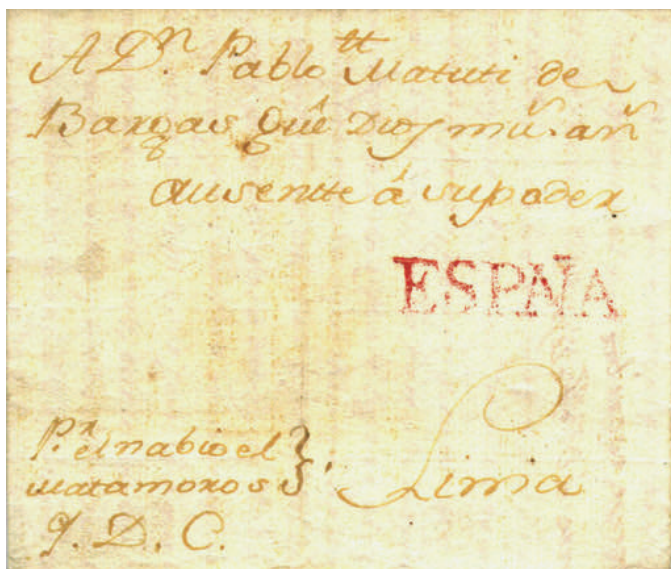 A D.n Pablo tt Matuti de
Bargas que Dios m.s an.s
ausentte á su poder
ESPAÑA
P.r el nabio el
Matamoros
Lima
Q. D. C.